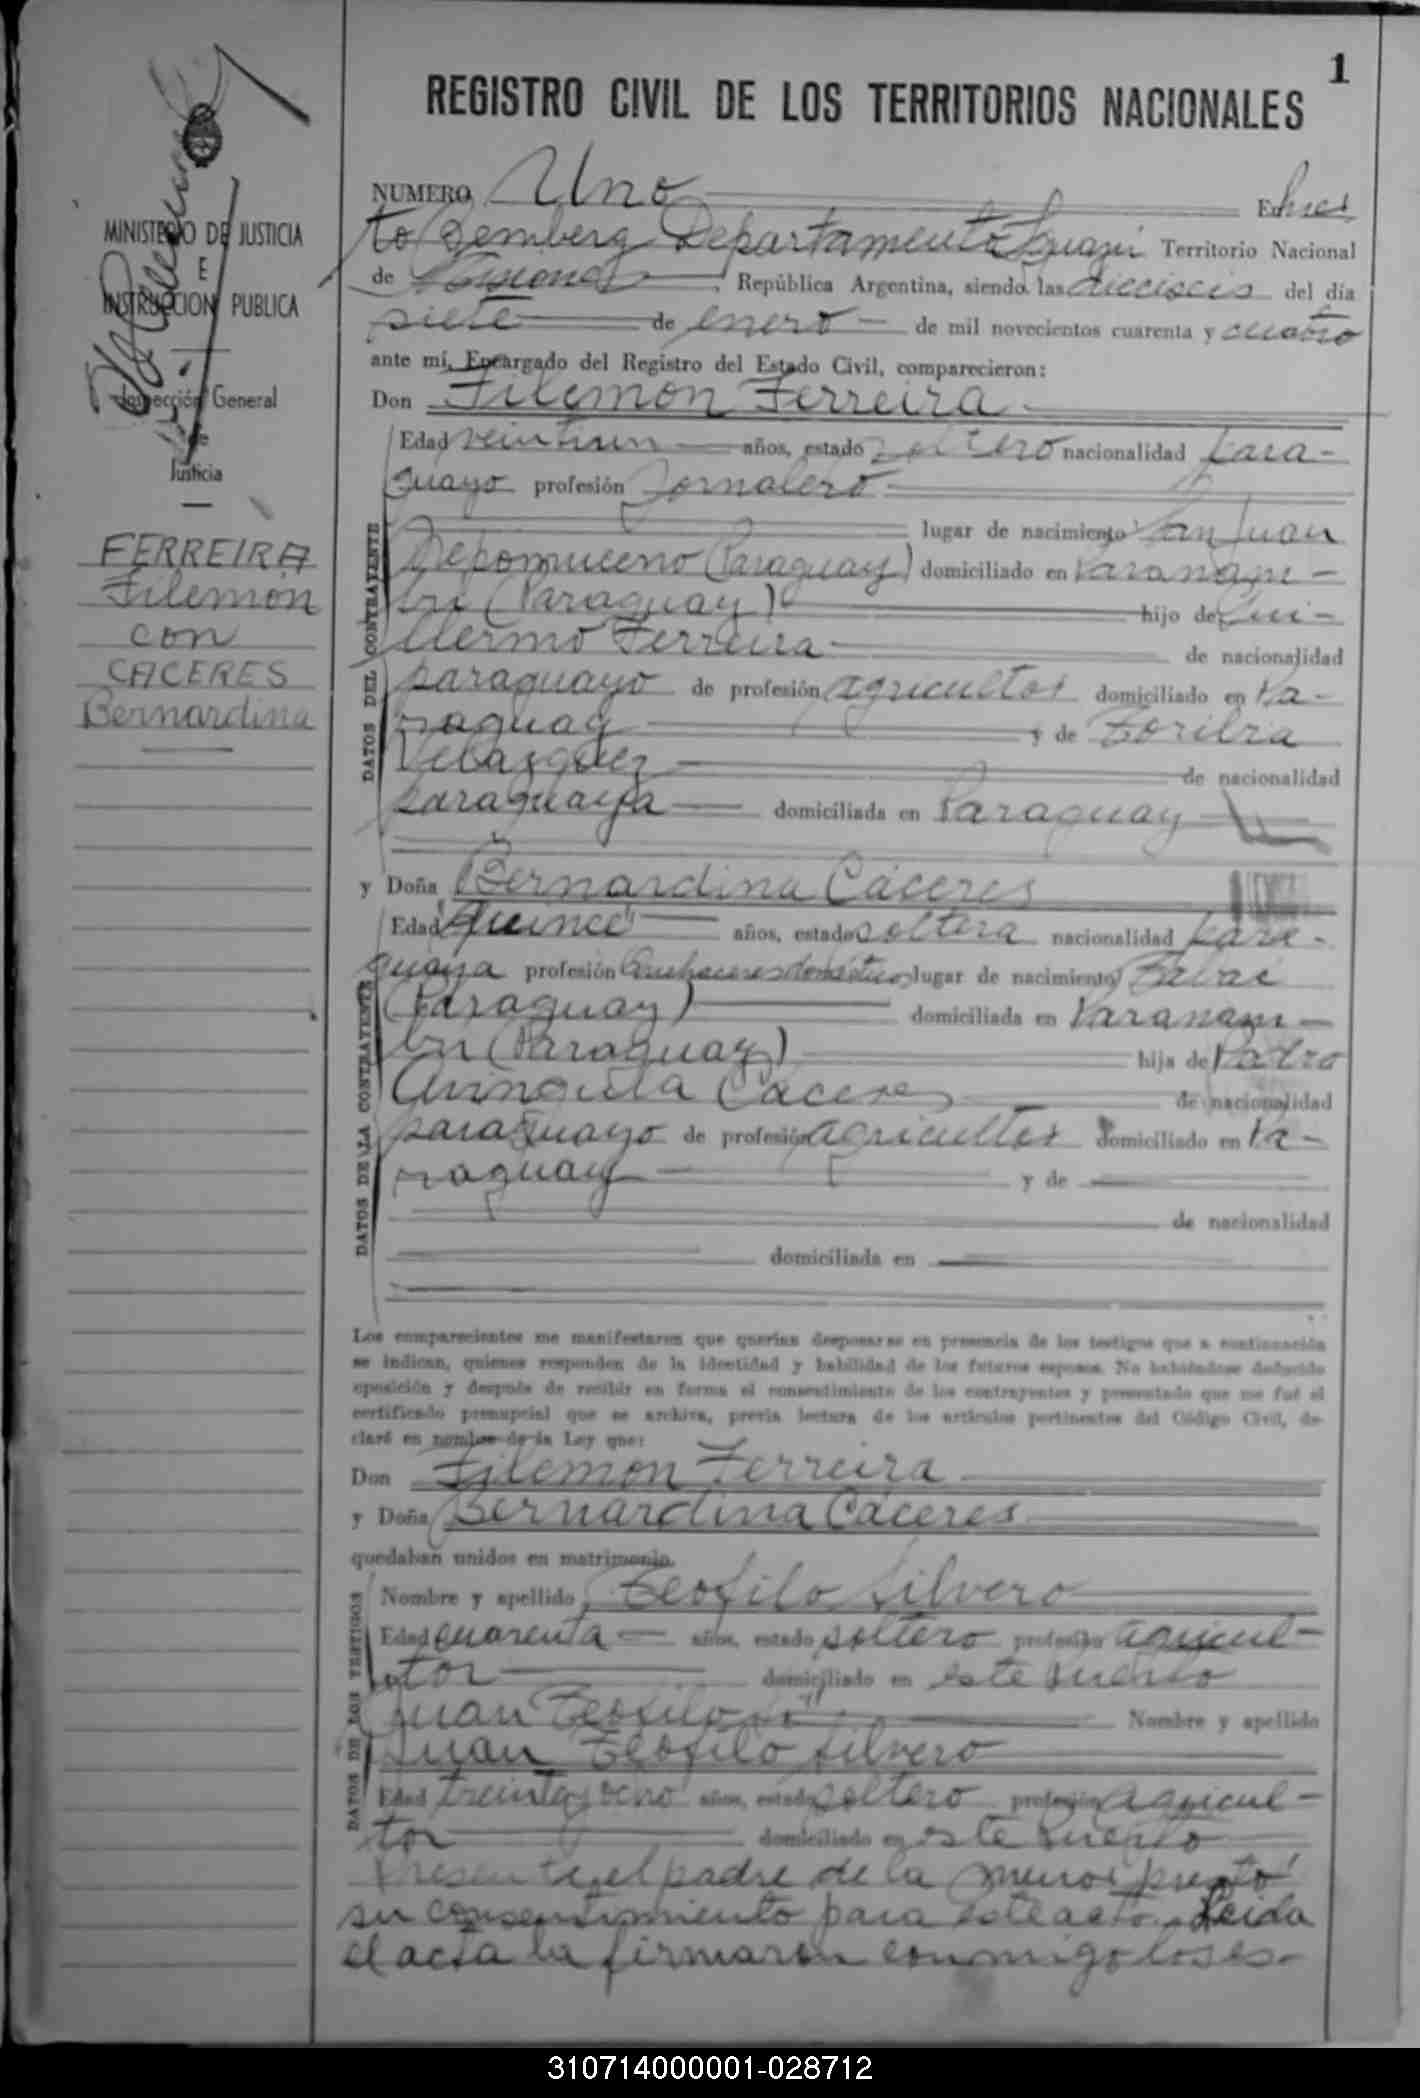 1
REGISTRO CIVIL DE LOS TERRITORIOS NACIONALES
MINISTERIO DE JUSTICIA
E
INSTRUCCION PUBLICA
Inspección General
de
Justicia
FERREIRA
Filemón
con
CACERES
Bernardina
NUMERO Uno En Puer
to Bemberg Departamento Iguazú Territorio Nacional
de Misiones, República Argentina, siendo las dieciseis del día
siete de enero de mil novecientos cuarenta y cuatro
ante mí, Encargado del Registro del Estado Civil, comparecieron:
Don Filemón Ferreira
DATOS DEL CONTRAYENTE
Edad veintiun años, estado soltero nacionalidad para-
guayo profesión Jornalero
lugar de nacimiento San Juan
Nepomuceno (Paraguay) domiciliado en
(Paraguay) hijo de Gui-
llermo Ferreira de nacionalidad
paraguayo de profesión agricultor domiciliado en Pa-
raguay y de Toribia
Velazquez de nacionalidad
paraguaya domiciliada en Paraguay
y Doña Bernardina Cáceres
DATOS DE LA CONTRAYENTE
Edad "quince" años, estado soltera nacionalidad para-
guaya profesión Quehaceres domésticos lugar de nacimiento
(Paraguay) domiciliada en
(Paraguay) hija de
Cáceres de nacionalidad
paraguayo de profesión agricultor domiciliado en Pa-
raguay y de
de nacionalidad
domiciliada en
Los comparecientes me manifestaron que querían desposarse en presencia de los testigos que a continuación
se indican, quienes responden de la identidad y habilidad de los futuros esposos. No habiéndose deducido
oposición y después de recibir en forma el consentimiento de los contrayentes y presentado que me fué el
certificado prenupcial que se archiva, previa lectura de los artículos pertinentes del Código Civil, de-
claré en nombre de la Ley que:
Don Filemón Ferreira
y Doña Bernardina Cáceres
quedaban unidos en matrimonio.
DATOS DE LOS TESTIGOS
Nombre y apellido Teofilo Silvero
Edad cuarenta años, estado soltero profesión agricul-
tor domiciliado en este Puerto
Juan Teofilo Nombre y apellido
Juan Teofilo Silvero
Edad treinta y ocho años, estado soltero profesión agricul-
tor domiciliado en este Puerto
Presente el padre de la menor prestó
su consentimiento para este acto. Leida
el acta la firmaron conmigo los es-
310714000001-028712